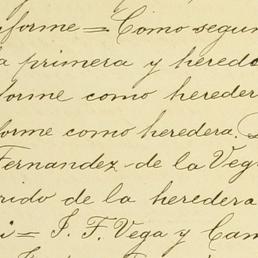 nforme = Como segun
la primera y hered
forme como hereder
forme como heredera. D
Fernandez de la Veg
rido de la heredera
i = J. F. Vega y Cam